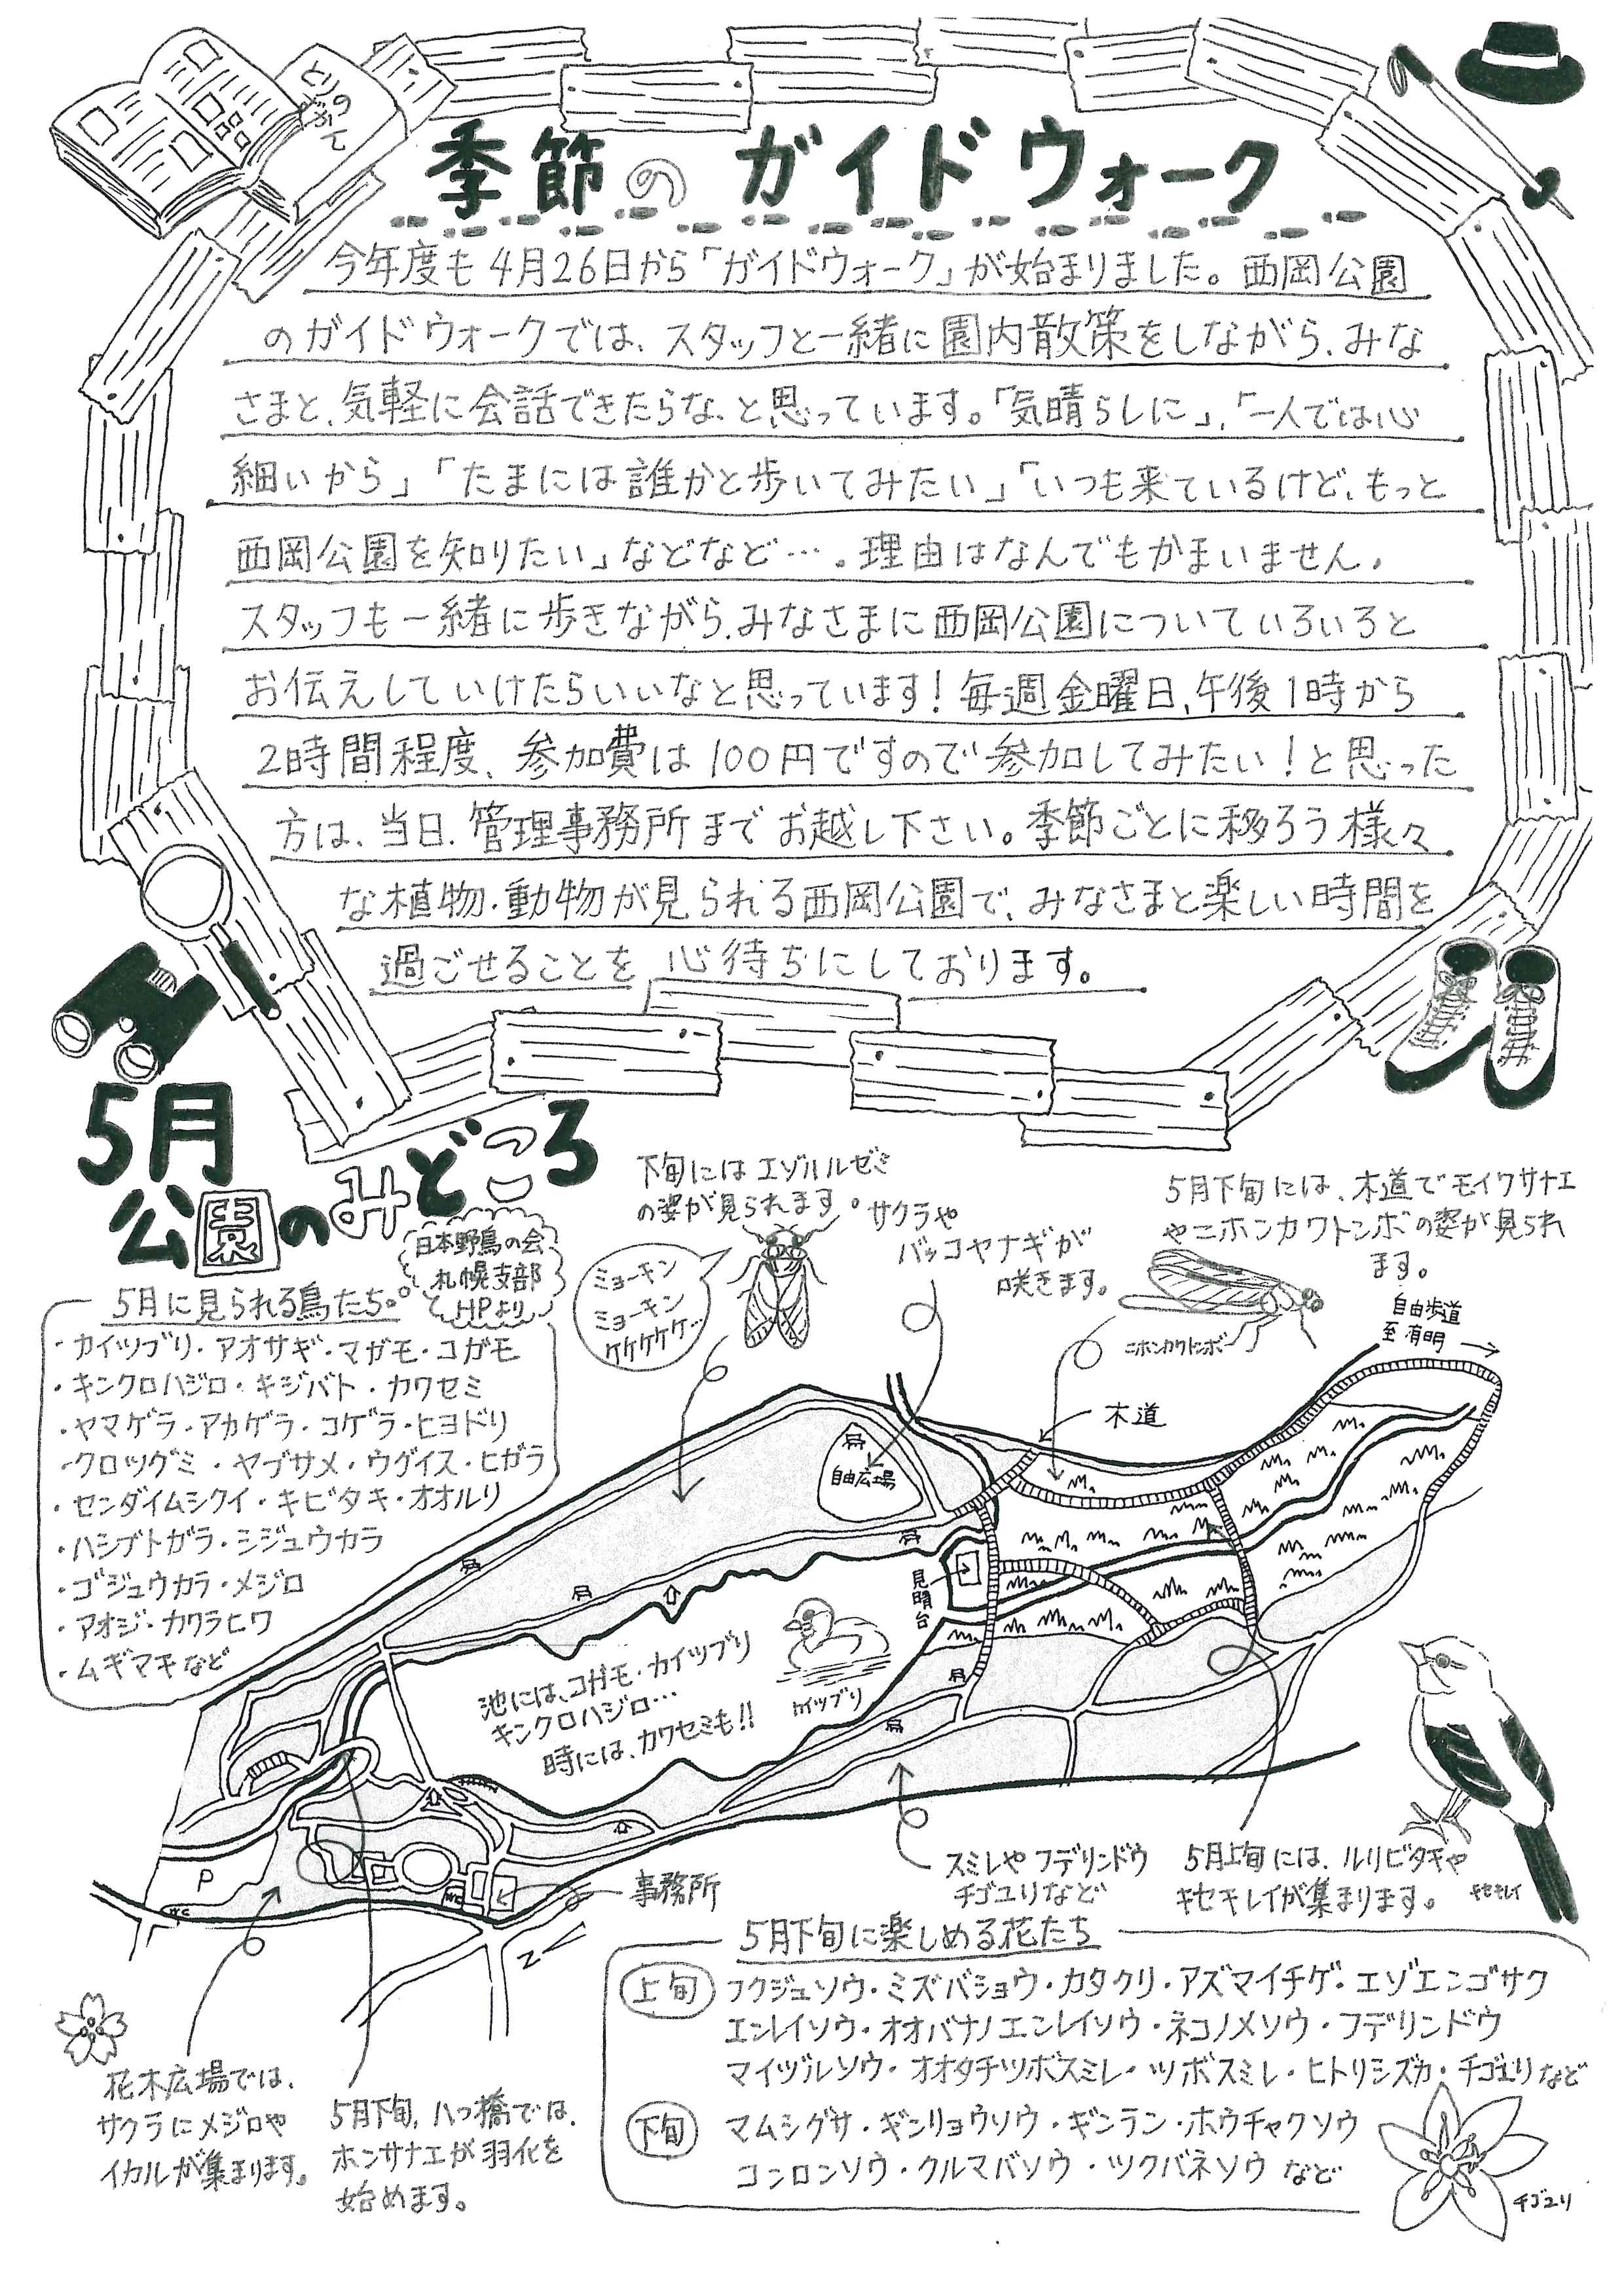 季節のガイドウォーク
今年度も4月26日から「ガイドウォーク」が始まりました。西岡公園
のガイドウォークでは、スタッフと一緒に園内散策をしながら、みな
さまと、気軽に会話できたらな、と思っています。「気晴らしに」、「一人では心
細いから」「たまには誰かと歩いてみたい」「いつも来ているけど、もっと
西岡公園を知りたい」などなど…。理由はなんでもかまいません。
スタッフも一緒に歩きながら、みなさまに西岡公園についていろいろと
お伝えしていけたらいいなと思っています!毎週金曜日、午後1時から
2時間程度、参加費は100円ですので参加してみたい!と思った
方は、当日、管理事務所までお越し下さい。季節ごとに移ろう様々
な植物・動物が見られる西岡公園で、みなさまと楽しい時間を
過ごせることを心待ちにしております。
5月
公園のみどころ
日本野鳥の会
札幌支部
HPより
5月に見られる鳥たち。
・カイツブリ・アオサギ・マガモ・コガモ
・キンクロハジロ・キジバト・カワセミ
・ヤマゲラ・アカゲラ・コゲラ・ヒヨドリ
・クロツグミ・ヤブサメ・ウグイス・ヒガラ
・センダイムシクイ・キビタキ・オオルリ
・ハシブトガラ・シジュウカラ
・ゴジュウカラ・メジロ
・アオジ・カワラヒワ
・ムギマキなど
下旬にはエゾハルゼミ
の姿が見られます。
ミョーキン
ミョーキン
ケケケケケ…
サクラや
バッコヤナギが
咲きます。
5月下旬には、木道でモイワサナエ
やニホンカワトンボの姿が見られ
ます。
ニホンカワトンボ
自由歩道
至有明
木道
自由広場
見晴台
池には、コガモ・カイツブリ
キンクロハジロ…
時には、カワセミも!!
カイツブリ
P
WC
WC
事務所
N
スミレやフデリンドウ
チゴユリなど
5月上旬には、ルリビタキや
キセキレイが集まります。
キセキレイ
花木広場では、
サクラにメジロや
イカルが集まります。
5月下旬、八つ橋では、
ホンサナエが羽化を
始めます。
5月下旬に楽しめる花たち
上旬 フクジュソウ・ミズバショウ・カタクリ・アズマイチゲ・エゾエンゴサク
エンレイソウ・オオバナノエンレイソウ・ネコノメソウ・フデリンドウ
マイヅルソウ・オオタチツボスミレ・ツボスミレ・ヒトリシズカ・チゴユリなど
下旬 マムシグサ・ギンリョウソウ・ギンラン・ホウチャクソウ
コンロンソウ・クルマバソウ・ツクバネソウ など
チゴユリ